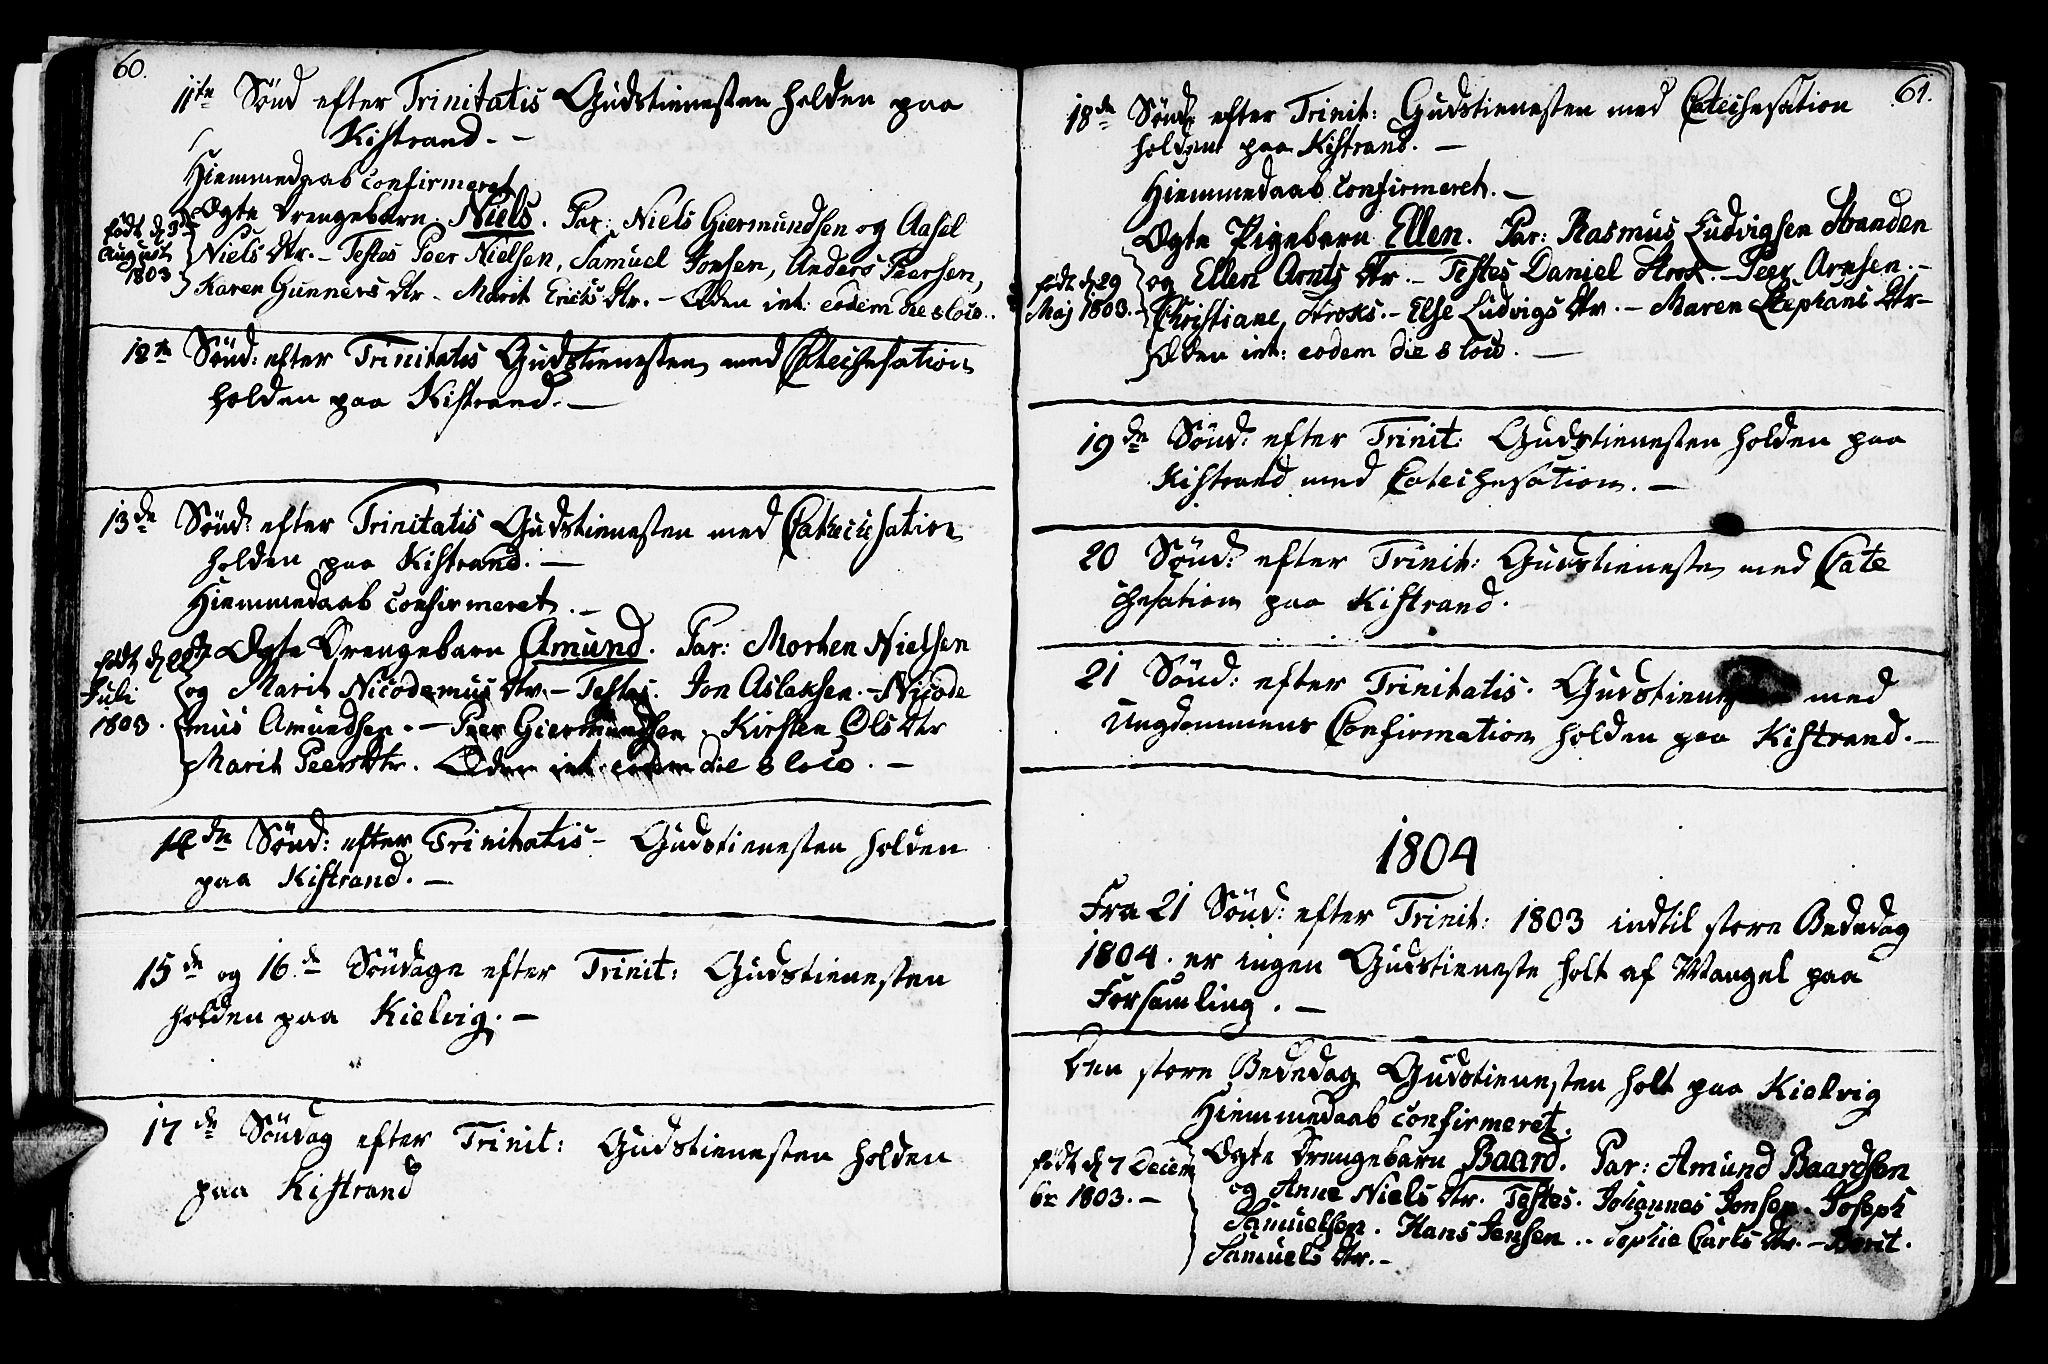 60.
11te Sönd efter Trinitatis Gudstienesten holden paa
Kistrand. -
Hiemmedaab confirmeret
Ægte Drengebarn. Niels. Par: Niels Giermundsen og Aasel
født d. 3de
August
1803
Niels Dtr. - Testes Peer Nielsen, Samuel Jonsen, Anders Peersen,
Karen Gunners Dtr - Marit Erichs Dtr. - Æden int: eodem die & loco..
12te Sönd: efter Trinitatis Gudstienesten med Catechesation
holden paa Kistrand. -
13de Sönd: efter Trinitatis Gudstienesten med Catechisation
holden paa Kistrand. -
Hiemmedaab confirmeret. -
født d.
Juli
1803.
Ægte Drengebarn Amund. Par: Morten Nielsen
og Marit Nicodemus Dtr. - Testes. Jon Aslaksen. - Nicode
mus Amundsen. - Peer Giermundsen. Kirsten Ols Dtr
Marit Peers Dtr. Æden int. eodem die & loco. -
14de Sönd: efter Trinitatis - Gudstienesten holden
paa Kistrand. -
15de og 16.de Söndage efter Trinit: Gudstienesten
holden paa Kielvig. -
17de Söndag efter Trinit: Gudstienesten holden
paa Kistrand
61.
18de Sönd: efter Trinit: Gudstienesten med Catechesation
holden paa Kistrand. -
Hiemmedaab confirmeret. -
Ægte Pigebarn Ellen. Par: Rasmus Ludvigsen Stranden
født d. 29
Maj 1803. -
og Ellen Arnts Dtr. - Testes Daniel Strok. - Peer Arnsen. -
Christiane Stroks. - Else Ludvigs Dtr. - Maren Stephans Dtr -
Æden int: eodem die & loco. -
19de Sönd: efter Trinit: Gudstienesten holden paa
Kistrand med Catechesation. -
20 Sönd: efter Trinit: Gudstienesten med Cate
chesation paa Kistrand.
21 Sönd: efter Trinitatis. Gudstienesten med
Ungdommens Confirmation holden paa Kistrand. -
1804
Fra 21 Sönd: efter Trinit: 1803 indtil store Bededag
1804. er ingen Gudstieneste holt af Mangel paa
Forsamling. -
Den store Bededag Gudstienesten holt paa Kielvig
Hiemmedaab confirmeret.
født d. 7 Decem
br 1803. -
Ægte Drengebarn Baard. Par: Amund Baardsen
og Anne Niels Dtr. Testes. Johannes Jonsen. Joseph
Samuelsen. Hans Jensen.. Sophie Carls Dtr. - Berit.
Samuels Dtr. -